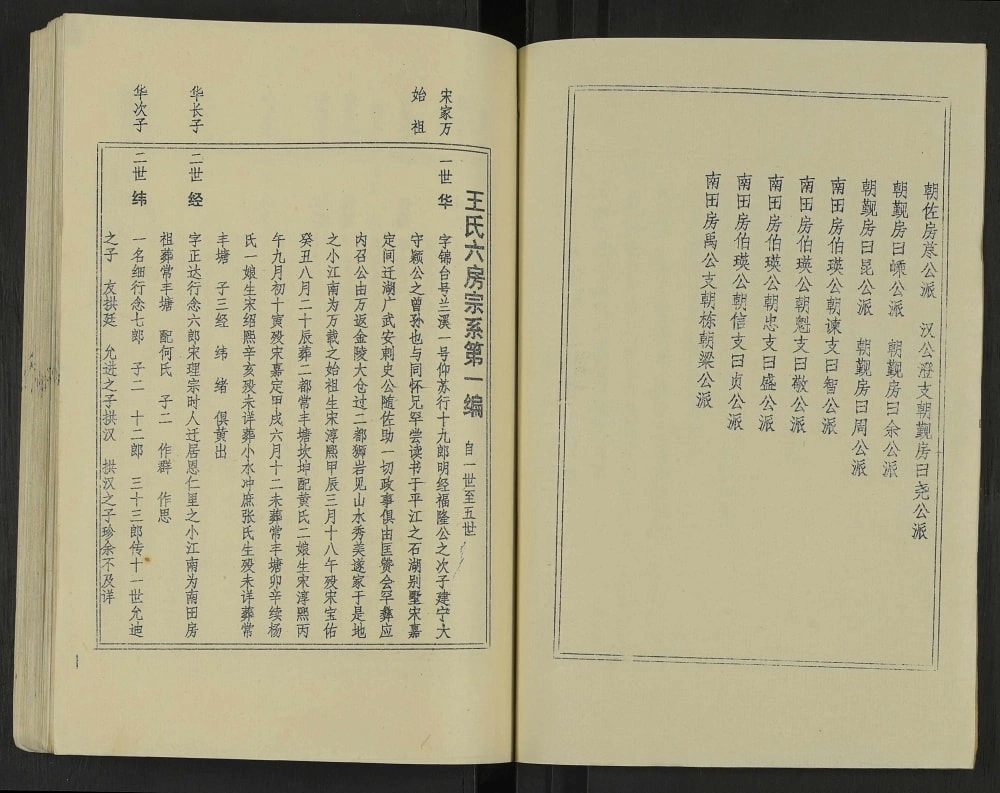 朝佐房苾公派　汉公澄支朝觐房曰尧公派
朝觐房曰嵊公派　朝觐房曰余公派
朝觐房曰昆公派　朝觐房曰周公派
南田房伯瑛公朝谏支曰智公派
南田房伯瑛公朝魁支曰敬公派
南田房伯瑛公朝忠支曰盛公派
南田房伯瑛公朝信支曰贞公派
南田房禹公支朝栋朝梁公派
王氏六房宗系第一编　自一世至五世
宋家万　一世　华　字锦台号兰溪一号仰苏行十九郎明经福隆公之次子建宁大
始祖　守颖公之曾孙也与同怀兄罕尝读书于平江之石湖别墅宋嘉
定间迁湖广武安刺史公随佐助一切政事俱由匡赞会罕彝应
内召公由万返金陵大仓过二都狮岩见山水秀美遂家于是地
之小江南为万载之始祖生宋淳熙甲辰三月十八午殁宋宝佑
癸丑八月二十辰葬二都常丰塘坎坤配黄氏二娘生宋淳熙丙
午九月初十寅殁宋嘉定甲戌六月十二未葬常丰塘卯辛续杨
氏一娘生宋绍熙辛亥殁未详葬小水冲庶张氏生殁未详葬常
丰塘　子三经　纬　绪　俱黄出
华长子　二世　经　字正达行念六郎宋理宗时人迁居恩仁里之小江南为南田房
祖葬常丰塘　配何氏　子二　作群　作思
华次子　二世　纬　一名细行念七郎　子二　十二郎　三十三郎传十一世允迪
之子　友拱廷　允进之子拱汉　拱汉之子珍余不及详
1